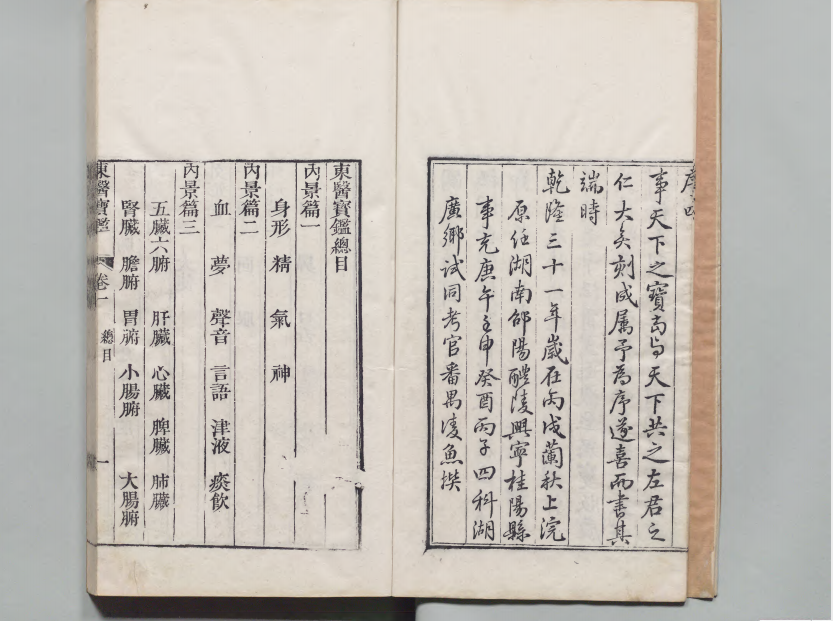 事天下之寶當與天下共之左君之
仁大矣刻成属予為序遂喜而書其
端時
乾隆三十一年歲在丙戌蘭秋上浣
原任湖南邵陽醴陵興寧桂陽縣
事充庚午壬申癸酉丙子四科湖
廣鄉試同考官番禺凌魚撰
東醫寶鑑總目
內景篇一
身形 精 氣 神
內景篇二
血 夢 聲音 言語 津液 痰飲
內景篇三
五臟六腑 肝臟 心臟 脾臟 肺臟
腎臟 膽腑 胃腑 小腸腑 大腸腑
東醫寶鑑 卷一 總目 一